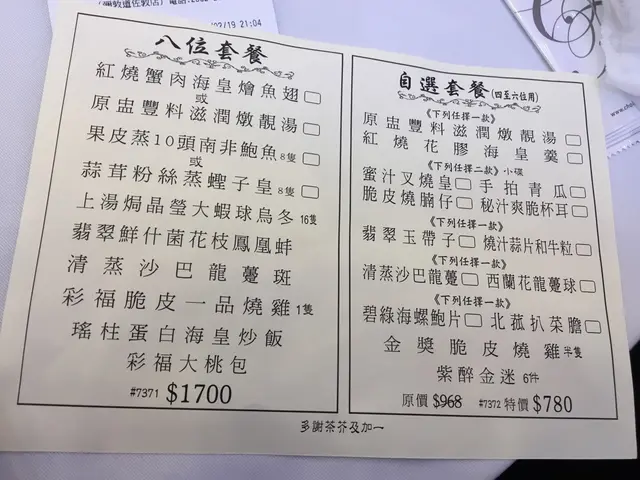 02/19 21:04
八位套餐
紅燒蟹肉海皇燴魚翅
或
原盅豐料滋潤燉靚湯
果皮蒸10頭南非鮑魚 8隻
或
蒜茸粉絲蒸蟶子皇 8隻
上湯焗晶瑩大蝦球烏冬 16隻
翡翠鮮什菌花枝鳳凰蚌
清蒸沙巴龍躉斑
彩福脆皮一品燒雞 1隻
瑤柱蛋白海皇炒飯
彩福大桃包
#7371 $1700
自選套餐(四至六位用)
《下列任擇一款》
原盅豐料滋潤燉靚湯
紅燒花膠海皇羹
《下列任擇二款》小碟
蜜汁叉燒皇 手拍青瓜
脆皮燒腩仔 秘汁爽脆杯耳
《下列任擇一款》
翡翠玉帶子 燒汁蒜片和牛粒
《下列任擇一款》
清蒸沙巴龍躉 西蘭花龍躉球
《下列任擇一款》
碧綠海螺鮑片 北菰扒菜膽
金獎脆皮燒雞 半隻
紫醉金迷 6件
原價 $968 #7372 特價 $780
多謝茶芥及加一